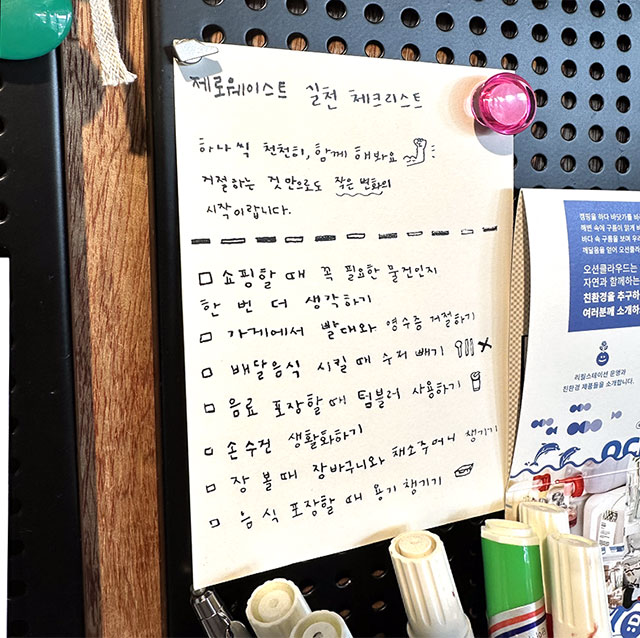 제로웨이스트 실천 체크리스트
하나씩 천천히, 함께 해봐요
거절하는 것만으로도 작은 변화의
시작이랍니다.
쇼핑할 때 꼭 필요한 물건인지
한 번 더 생각하기
가게에서 빨대와 영수증 거절하기
배달음식 시킬 때 수저 빼기
음료 포장할 때 텀블러 사용하기
손수건 생활화하기
장 볼 때 장바구니와 채소주머니 챙기기
음식 포장할 때 용기 챙기기
캠핑을 하다 바닷가를
해변 속에 구름이 맑게
바다 속 구름을 보며
깨달음을 얻어
오션클라우드는
자연과 함께하는
친환경을 추구하
여러분께 소개하
리필스테이션 운영과
친환경 제품들을 소개합니다.